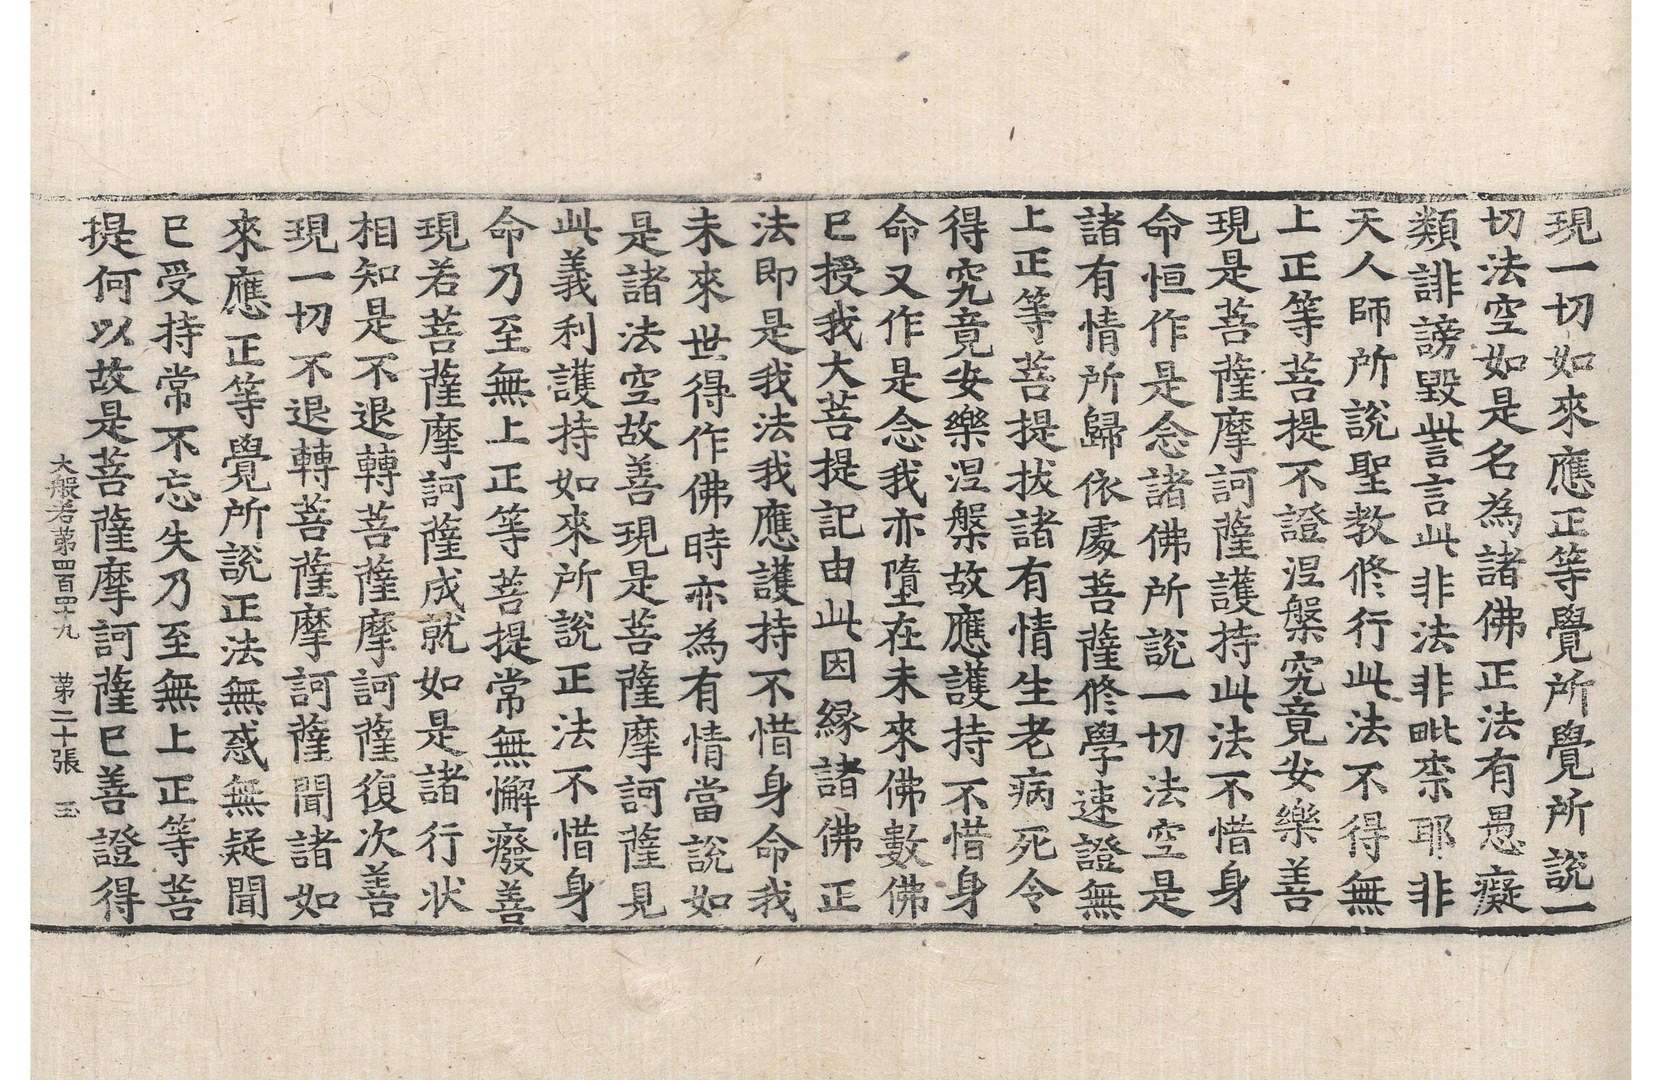 現一切如來應正等覺所覺所說一
切法空如是名為諸佛正法有愚癡
類誹謗毀呰言此非法非毗柰耶非
天人師所說聖教修行此法不得無
上正等菩提不證涅槃究竟安樂善
現是菩薩摩訶薩護持此法不惜身
命恒作是念諸佛所說一切法空是
諸有情所歸依處菩薩修學速證無
上正等菩提拔諸有情生老病死令
得究竟安樂涅槃故應護持不惜身
命又作是念我亦墮在未來佛數佛
已授我大菩提記由此因緣諸佛正
法即是我法我應護持不惜身命我
未來世得作佛時亦為有情當說如
是諸法空故善現是菩薩摩訶薩見
此義利護持如來所說正法不惜身
命乃至無上正等菩提常無懈癈善
現若菩薩摩訶薩成就如是諸行狀
相知是不退轉菩薩摩訶薩復次善
現一切不退轉菩薩摩訶薩聞諸如
來應正等覺所說正法無惑無疑聞
已受持常不忘失乃至無上正等菩
提何以故是菩薩摩訶薩已善證得
大般若第四百四十九 第二十張 玉